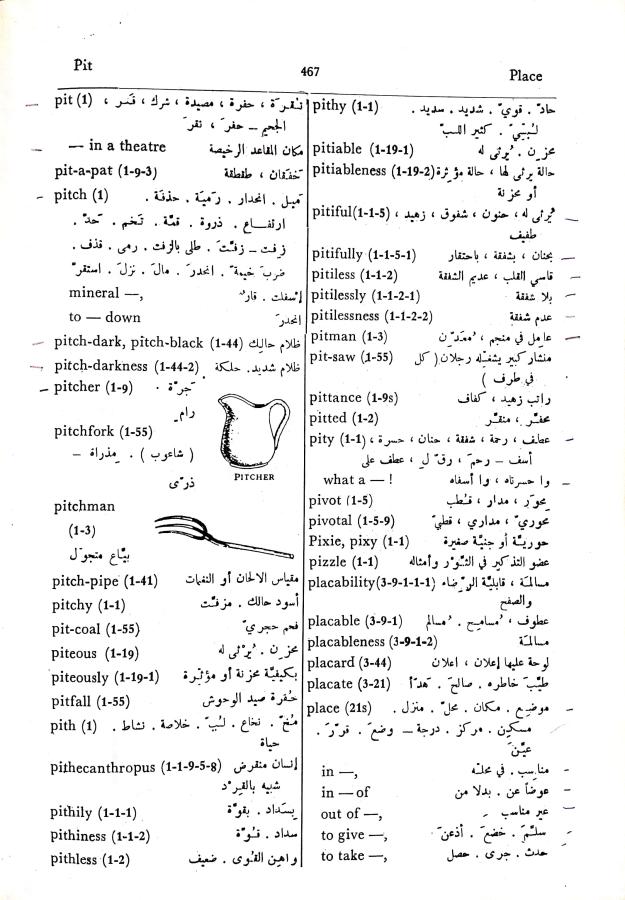 Pit
467
Place
pit (1) نُقرَة ، حفرة ، مصيدة ، شرك ، قبر ،
الجحيم – حفرَ ، نقرَ
— in a theatre مكان المقاعد الرخيصة
pit-a-pat (1-9-3) خفقان ، طقطقة
pitch (1) ميل . انحدار . رميَة . حذفَة .
ارتفاع . ذروة . قمّة . تخم . حدّ .
زفت – زفّتَ . طلى بالزفت . رمى . قذف .
ضربَ خيمةً . انحدرَ . مالَ . نزلَ . استقرّ
mineral —, إسفلت . قار
to — down انحدرَ
pitch-dark, pitch-black (1-44) ظلام حالك
pitch-darkness (1-44-2) ظلام شديد. حلكة
pitcher (1-9) جرّة .
رامٍ
pitchfork (1-55)
( شاعوب ) . مذراة –
ذرّى
PITCHER
pitchman
(1-3)
بيّاع متجوّل
pitch-pipe (1-41) مقياس الالحان أو النغمات
pitchy (1-1) أسود حالك . مزفّت
pit-coal (1-55) فحم حجريّ
piteous (1-19) محزن . يُرثى له
piteously (1-19-1) بكيفيّة محزنة أو مؤثّرة
pitfall (1-55) حُفرة صيد الوحوش
pith (1) مُخّ . نخاع . لُبّ . خلاصة . نشاط .
حياة
pithecanthropus (1-1-9-5-8) إنسان منقرض
شبيه بالقرد
pithily (1-1-1) بسداد . بقوّة
pithiness (1-1-2) سداد . قوّة
pithless (1-2) واهين القُوى . ضعيف
pithy (1-1) حادّ . قويّ . شديد . سديد .
لُبيّ . كثير اللبّ
pitiable (1-19-1) محزن . يُرثى له
pitiableness (1-19-2) حالة يرثى لها ، حالة مؤثرة
أو محزنة
pitiful(1-1-5) يُرثى له ، حنون ، شفوق ، زهيد ،
طفيف
pitifully (1-1-5-1) بحنان ، بشفقة ، باحتقار
pitiless (1-1-2) قاسي القلب ، عديم الشفقة
pitilessly (1-1-2-1) بلا شفقة
pitilessness (1-1-2-2) عدم شفقة
pitman (1-3) عامل في منجم ، مُعدّن
pit-saw (1-55) منشار كبير يشغله رجلان ( كل
في طرف )
pittance (1-9s) راتب زهيد ، كفاف
pitted (1-2) محفّر ، منقّر
pity (1-1) عطف ، رحمة ، شفقة ، حنان ، حسرة ،
أسف – رحمَ ، رقّ ل ، عطف على
what a — ! وا حسرتاه ، وا أسفاه
pivot (1-5) محور ، مدار ، قُطب
pivotal (1-5-9) محوريّ ، مداري ، قطبيّ
Pixie, pixy (1-1) حوريّة أو جنيّة صغيرة
pizzle (1-1) عضو التذكير في الثور وأمثاله
placability(3-9-1-1-1) مسالمة ، قابليّة الرضاء
والصفح
placable (3-9-1) عطوف ، مُسامح . مُسالم
placableness (3-9-1-2) مسالمة
placard (3-44) لوحة عليها إعلان ، اعلان
placate (3-21) طيّبَ خاطره . صالحَ . هدّأ
place (21s) موضع . مكان . محلّ . منزل .
مسكن . مركز . درجة – وضعَ . قرّرَ .
عيّنَ
in —, مناسب . في محلّه
in — of عوضاً عن . بدلا من
out of —, غير مناسب
to give —, سلّمَ . خضعَ . أذعنَ
to take —, حدث . جرى . حصل